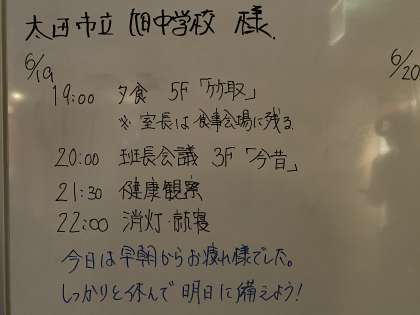 太田市立 旭中学校 様.
6/19
19:00 夕食 5F「竹取」
※ 室長は食事会場に残る
20:00 班長会議 3F「今昔」
21:30 健康観察
22:00 消灯・就寝
今日は早朝からお疲れ様でした。
しっかりと休んで明日に備えよう!
6/20